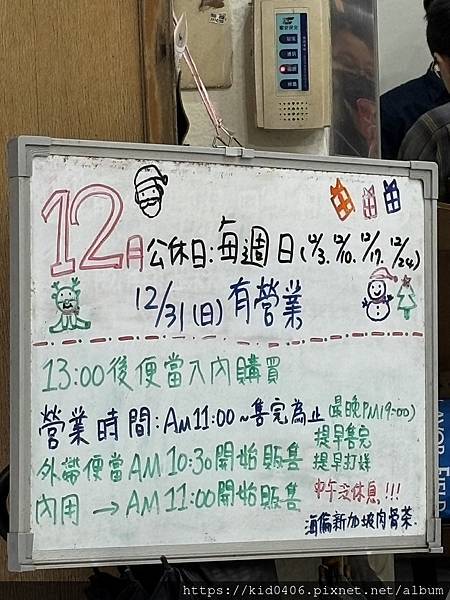 12月公休日:每週日(12/3.12/10.12/17.12/24)
12/31(日)有營業
13:00後便當入內購買
營業時間:AM11:00~售完為止
(最晚PM19:00)
外帶便當AM10:30開始販售
提早售完
提早打烊
內用→AM11:00開始販售
中午沒休息!!!
海倫新加坡肉骨茶.
https://kid0406.pixnet.net/album